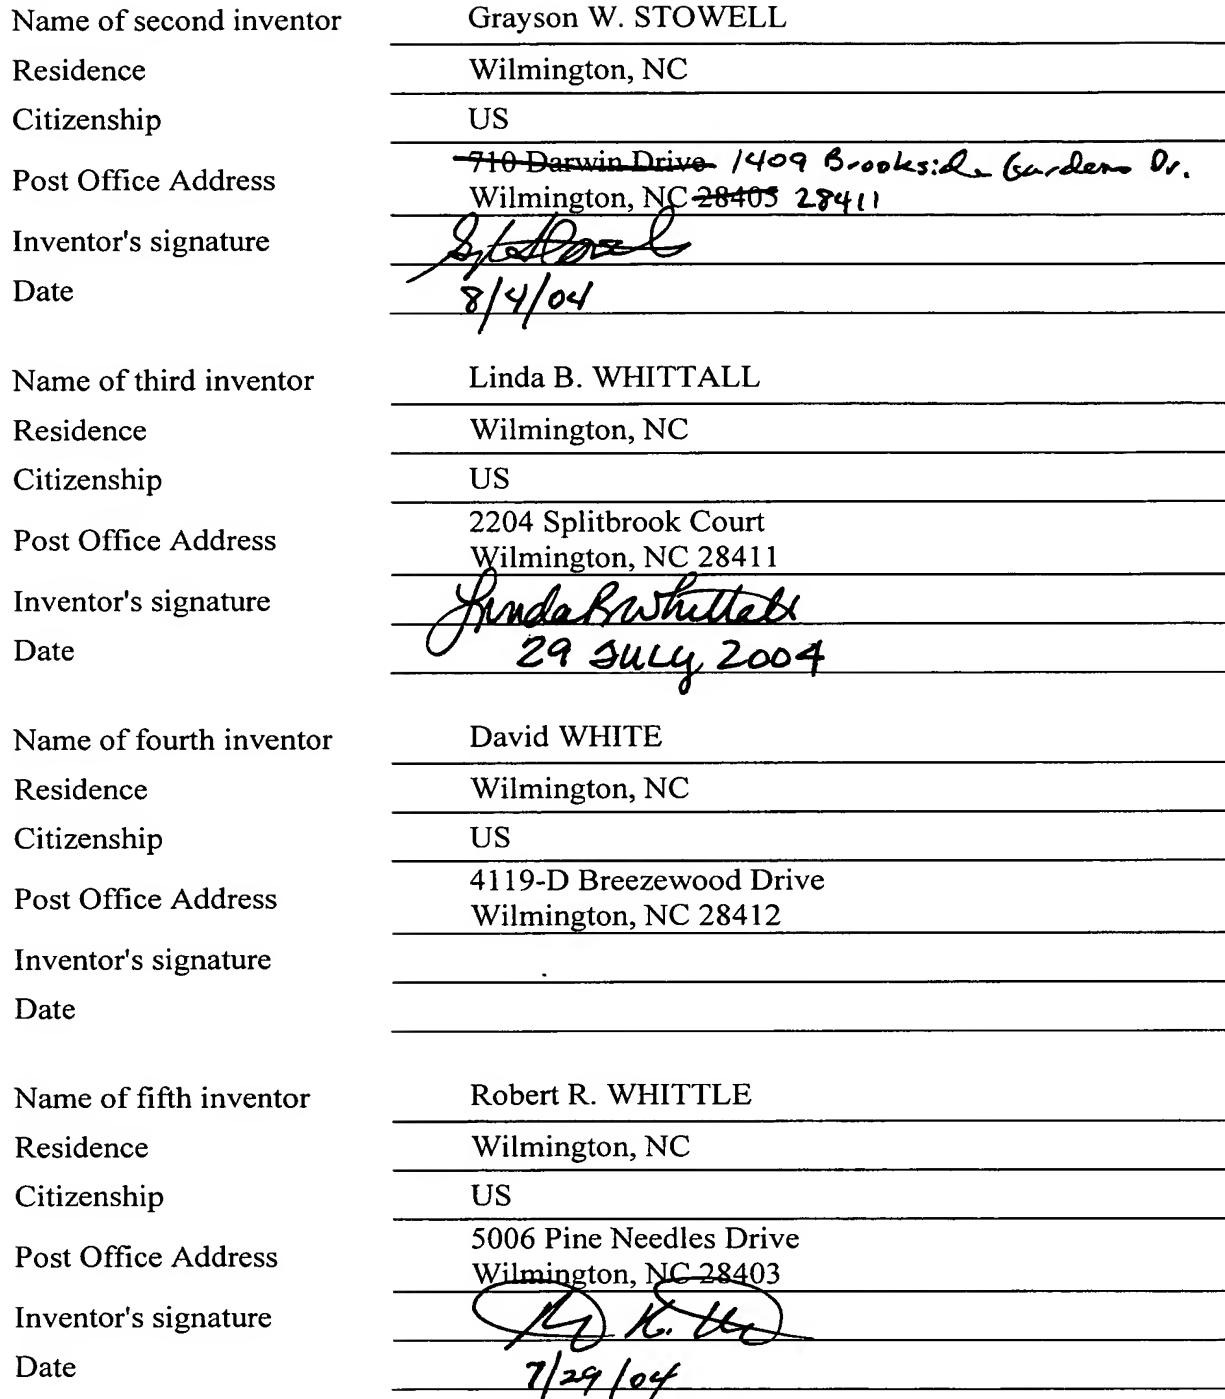 Name of second inventor Grayson W. STOWELL
Residence Wilmington, NC
Citizenship US
Post Office Address 710 Darwin Drive 1409 Brookside Gardens Dr.
Wilmington, NC 28405 28411
Inventor's signature
Date 8/4/04
Name of third inventor Linda B. WHITTALL
Residence Wilmington, NC
Citizenship US
Post Office Address 2204 Splitbrook Court
Wilmington, NC 28411
Inventor's signature Linda B Whittall
Date 29 JULY 2004
Name of fourth inventor David WHITE
Residence Wilmington, NC
Citizenship US
Post Office Address 4119-D Breezewood Drive
Wilmington, NC 28412
Inventor's signature
Date
Name of fifth inventor Robert R. WHITTLE
Residence Wilmington, NC
Citizenship US
Post Office Address 5006 Pine Needles Drive
Wilmington, NC 28403
Inventor's signature
Date 7/29/04